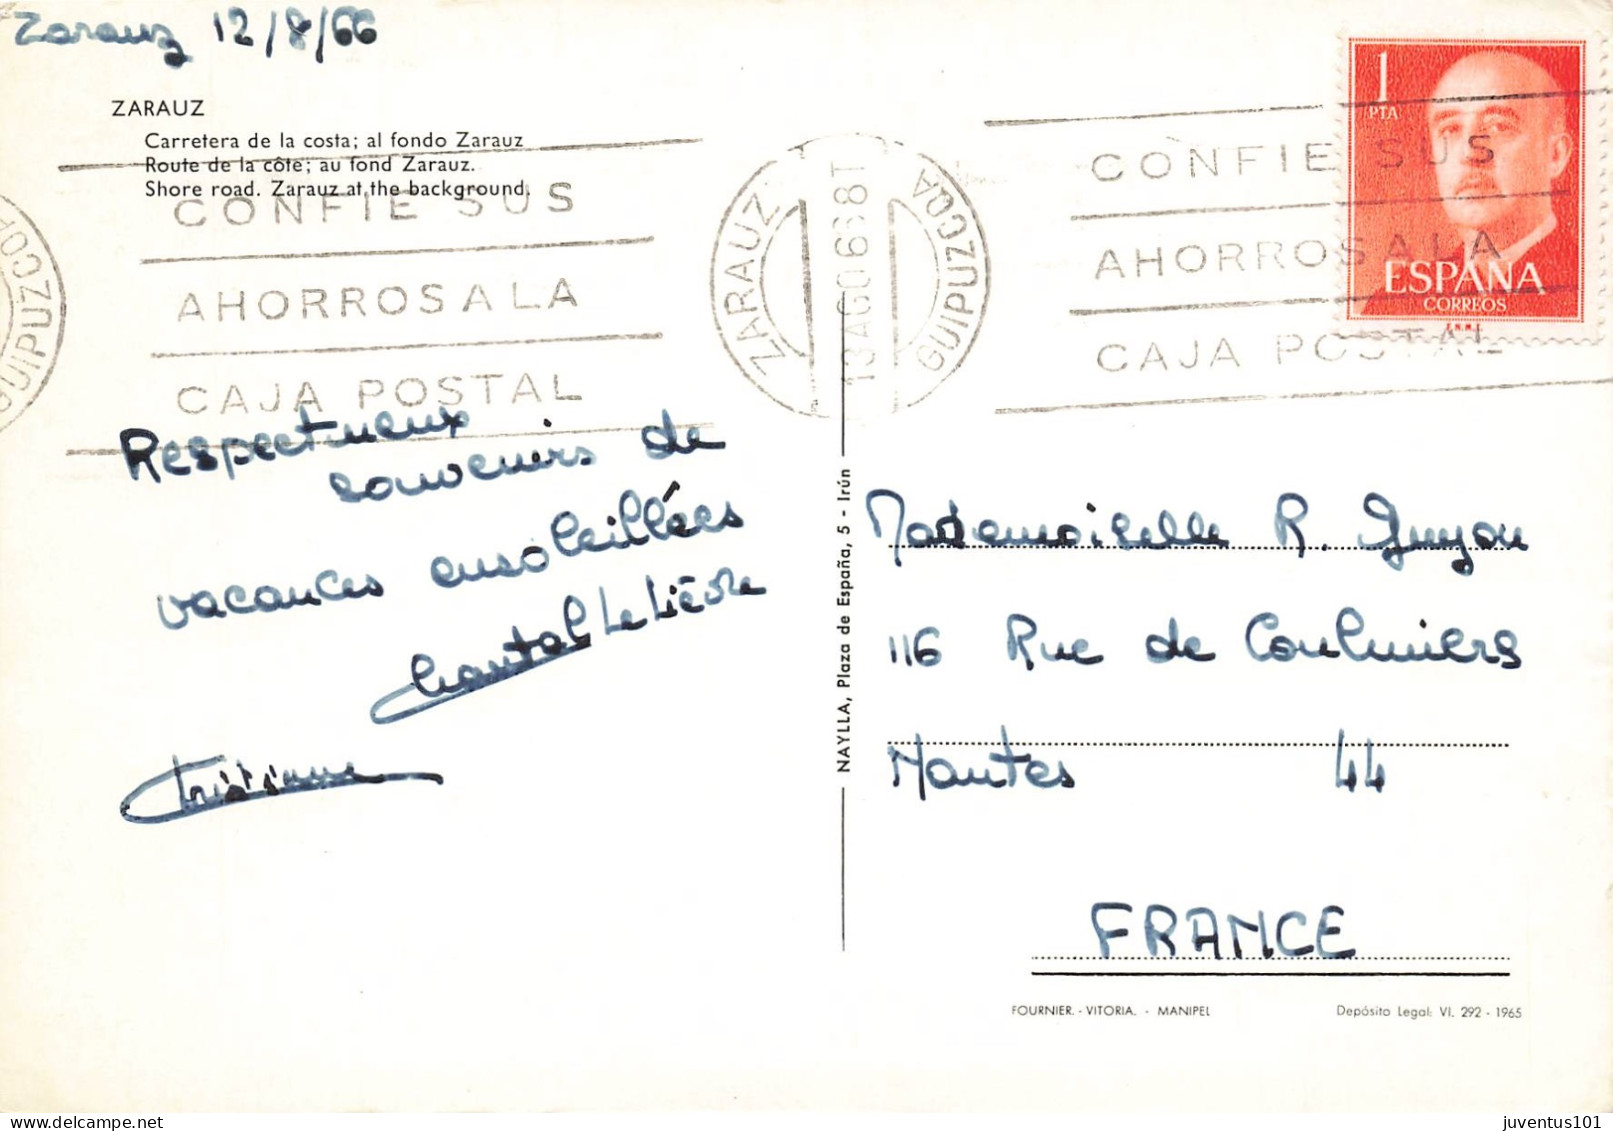 Zarauz 12/8/66
ZARAUZ
Carretera de la costa; al fondo Zarauz
Route de la côte; au fond Zarauz.
Shore road. Zarauz at the background.
GUIPUZCOA
CONFIE SUS
AHORROS A LA
CAJA POSTAL
ZARAUZ
13 AGO 66 8T
GUIPUZCOA
CONFIE SUS
AHORROS A LA
CAJA POSTAL
1
PTA
ESPAÑA
CORREOS
F.N.M.T.
Respectueux
souvenirs de
vacances ensoleillées
Chantal Le Lièvre
Christiane
NAYLLA, Plaza de España, 5 - Irún
Mademoiselle R. Guyon
116 Rue de Coulmiers
Nantes 44
FRANCE
FOURNIER. - VITORIA. - MANIPEL
Depósito Legal: VI. 292 - 1965
juventus101